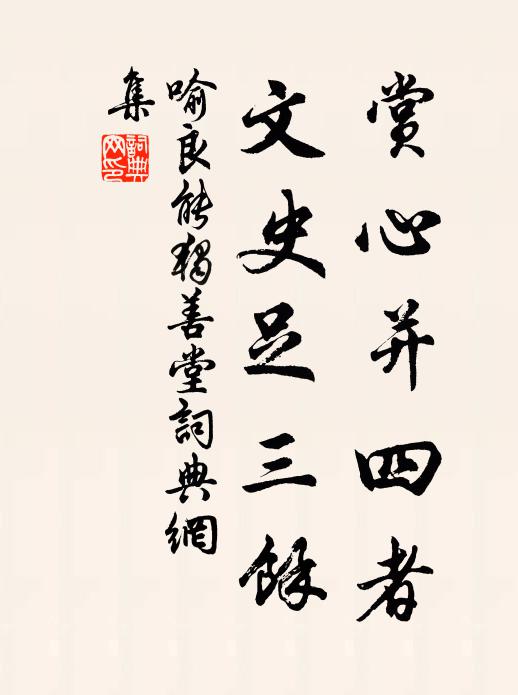 賞心并四者
文史足三餘
喻良能獨善堂詞典網
集
詞典
网印